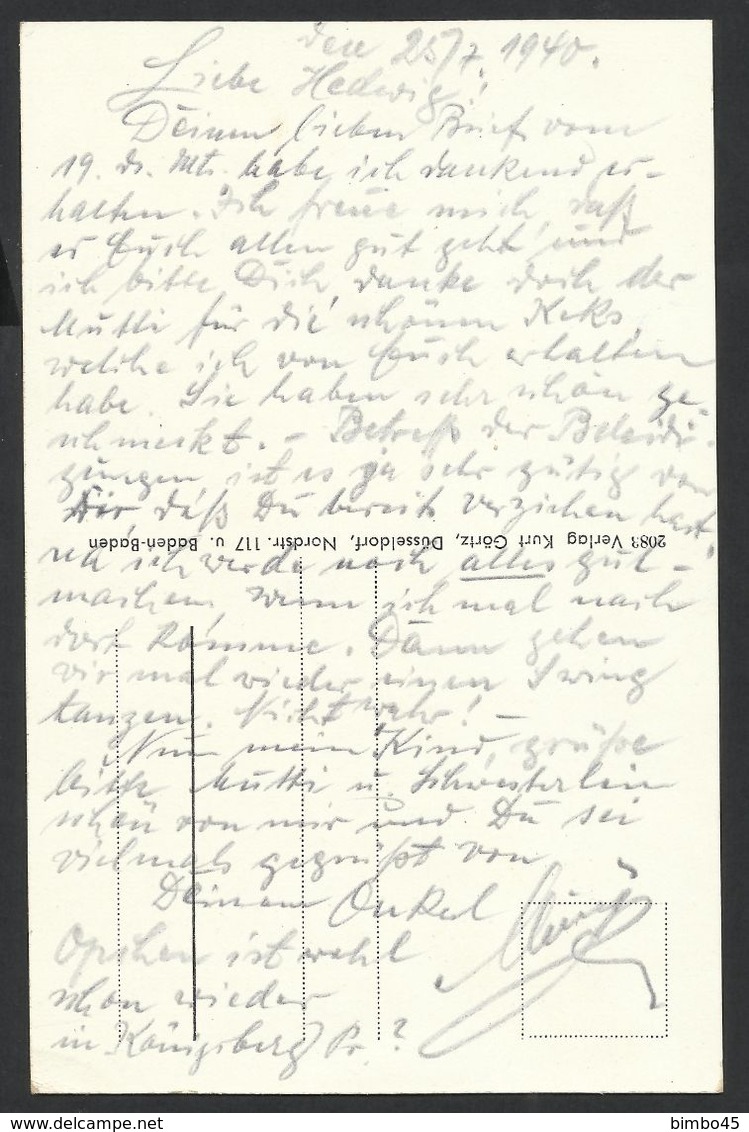 den 25/7. 1940.
Liebe Hedwig!
Deinen lieben Brief vom
19. ds. Mts. habe ich dankend er-
halten. Ich freue mich, daß
es Euch allen gut geht und
ich bitte Dich danke doch der
Mutti für die schönen Keks,
welche ich von Euch erhalten
habe. Sie haben sehr schön ge-
schmeckt. - Betreff der Beleidi-
gungen ist es ja sehr gütig von
Dir, daß Du bereits verziehen hast,
2083 Verlag Kurt Görtz, Düsseldorf, Nordstr. 117 u. Baden-Baden
na ich werde noch alles gut-
machen, wenn ich mal nach
dort komme. Dann gehen
wir mal wieder einen Swing
tanzen. Nicht wahr! -
Nun mein Kind, grüße
bitte Mutti u. Schwesterlein
schön von mir und Du sei
vielmals gegrüßt von
Deinem Onkel
Opchen ist wohl
schon wieder
in Königsberg Pr.?
bimbo45